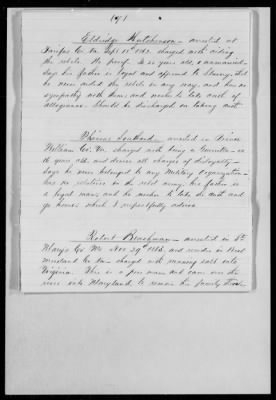 Eldridge Hutchinson – arrested at
Fairfax Co Va Sept 11th 1862, charged with aiding
the rebels. No proof. Is 20 years old, & unmarried –
says his father is loyal and opposed to Slavery, that
he never aided the rebels in any way, and has no
sympathy with them and wants to take oath of
allegiance. Should be discharged on taking oath
Thomas Southard – arrested in Prince
William Co. Va. charged with being a Guerrilla – is
16 years old, and denies all charges of disloyalty –
Says he never belonged to any Military Organization –
has no relatives in the rebel army. his father is
a loyal man, and he wishes to take the oath and
go home which I respectfully advise.
Robert Beachman – arrested in St
Marys Co Md Nov 29th 1862, and resides in West
moreland Co Va – charged with running salt into
Virginia. This is a poor man and came over the
river into Maryland, to remove his family there